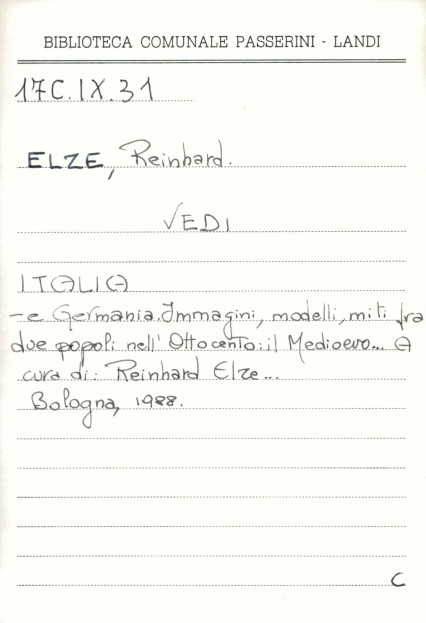 BIBLIOTECA COMUNALE PASSERINI - LANDI
17C.IX.31
ELZE, Reinhard.
VEDI
ITALIA
- e Germania. Immagini, modelli, miti fra
due popoli nell'Ottocento: il Medioevo... A
cura di: Reinhard Elze...
Bologna, 1988.
C